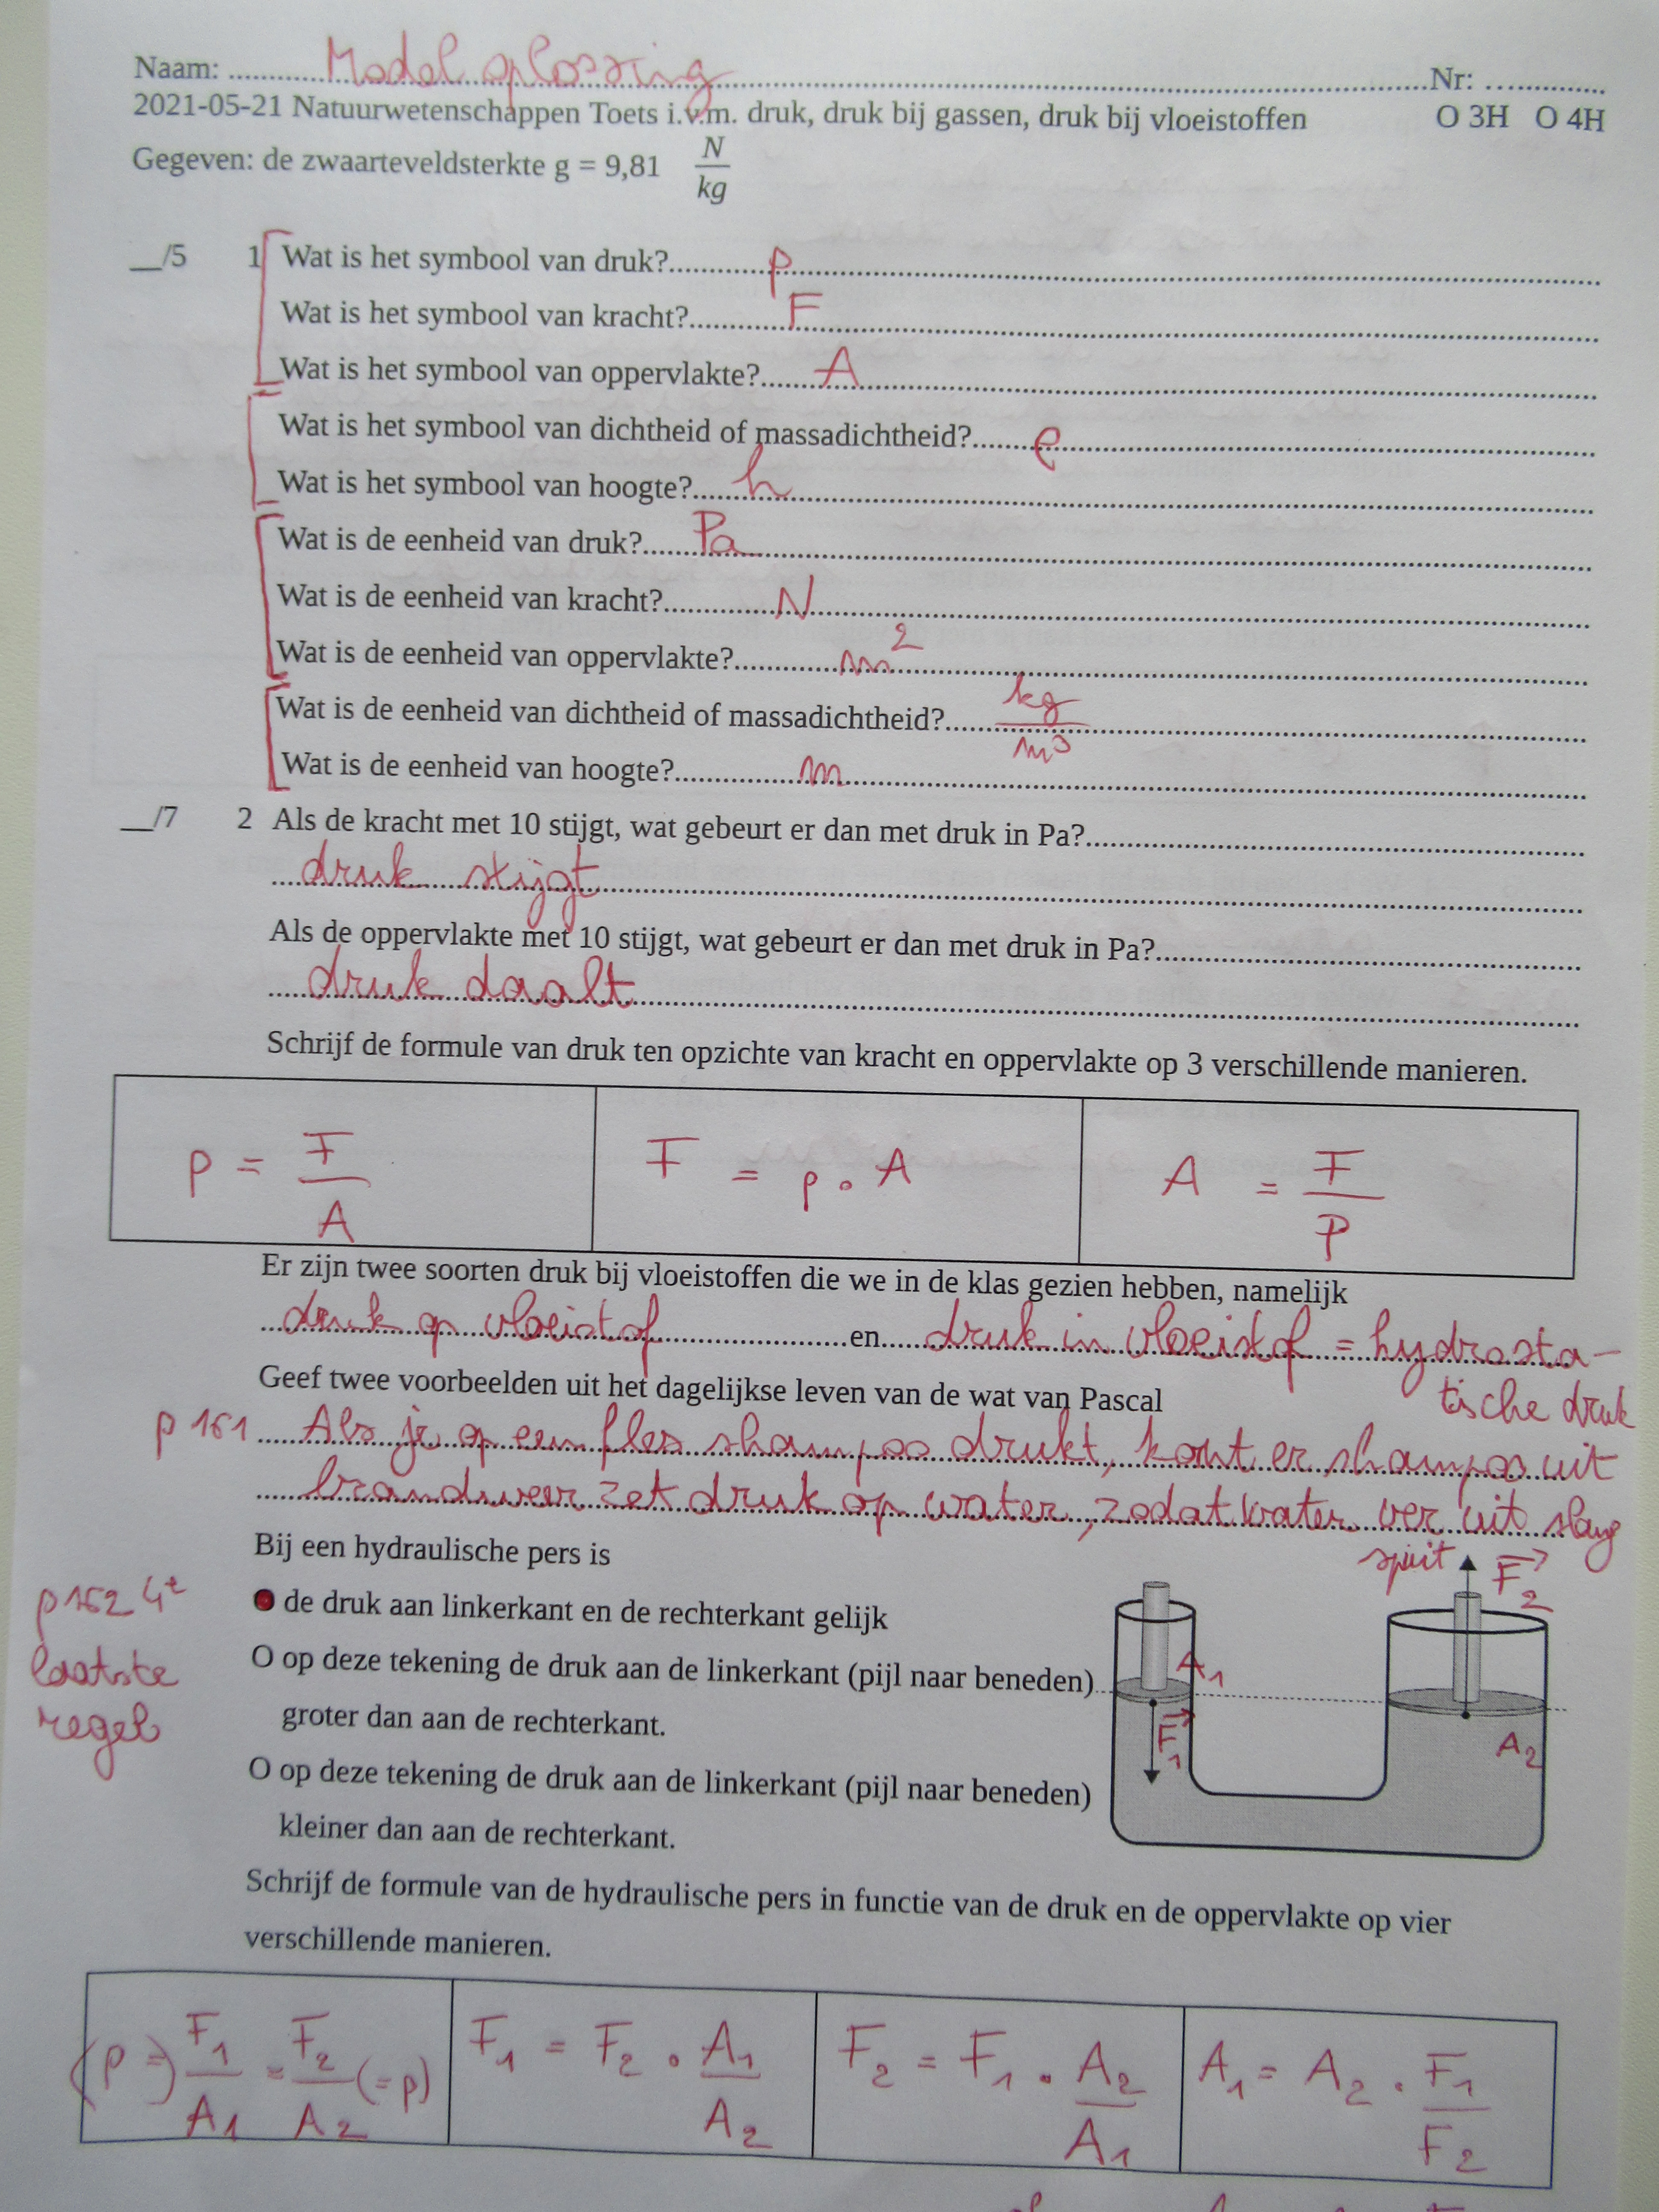 Naam: Model oplossing Nr:
2021-05-21 Natuurwetenschappen Toets i.v.m. druk, druk bij gassen, druk bij vloeistoffen O 3H O 4H
Gegeven: de zwaarteveldsterkte g = 9,81 N/kg
__/5 1 Wat is het symbool van druk? p
Wat is het symbool van kracht? F
Wat is het symbool van oppervlakte? A
Wat is het symbool van dichtheid of massadichtheid? ρ
Wat is het symbool van hoogte? h
Wat is de eenheid van druk? Pa
Wat is de eenheid van kracht? N
Wat is de eenheid van oppervlakte? m²
Wat is de eenheid van dichtheid of massadichtheid? kg/m³
Wat is de eenheid van hoogte? m
__/7 2 Als de kracht met 10 stijgt, wat gebeurt er dan met druk in Pa?
druk stijgt
Als de oppervlakte met 10 stijgt, wat gebeurt er dan met druk in Pa?
druk daalt
Schrijf de formule van druk ten opzichte van kracht en oppervlakte op 3 verschillende manieren.
p = F/A F = p . A A = F/P
Er zijn twee soorten druk bij vloeistoffen die we in de klas gezien hebben, namelijk
druk op vloeistof en druk in vloeistof = hydrosta-
tische druk
Geef twee voorbeelden uit het dagelijkse leven van de wat van Pascal
p 161 Als je op een fles shampoo drukt, komt er shampoo uit
brandweer zet druk op water, zodat water ver uit slang
spuit
Bij een hydraulische pers is
de druk aan linkerkant en de rechterkant gelijk
p 162 4e
laatste
regel
O op deze tekening de druk aan de linkerkant (pijl naar beneden)
groter dan aan de rechterkant.
O op deze tekening de druk aan de linkerkant (pijl naar beneden)
kleiner dan aan de rechterkant.
F₂
A₁
F₁
A₂
Schrijf de formule van de hydraulische pers in functie van de druk en de oppervlakte op vier
verschillende manieren.
(p =) F₁/A₁ = F₂/A₂ (= p) F₁ = F₂ . A₁/A₂ F₂ = F₁ . A₂/A₁ A₁ = A₂ . F₁/F₂